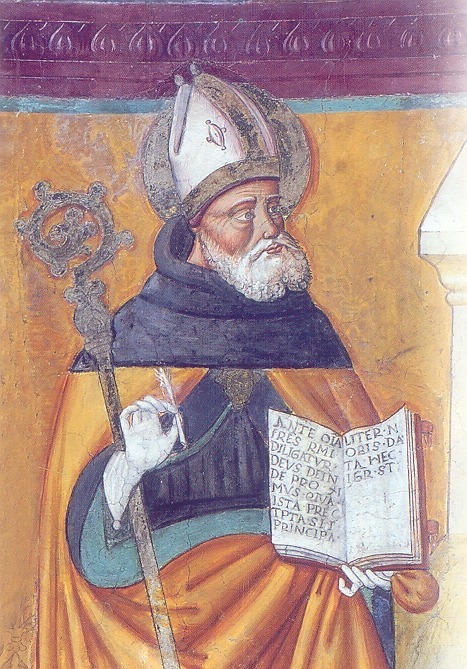 ANTE OIA
FRES RMI
DILIGATVR
DEVS DEIN
DE PROXI
MVS QVIA
ISTA PREC
TPTA SVT
PRINCIPA
LITER·N
OBIS·DA
TA·HEC
IGR·ST·